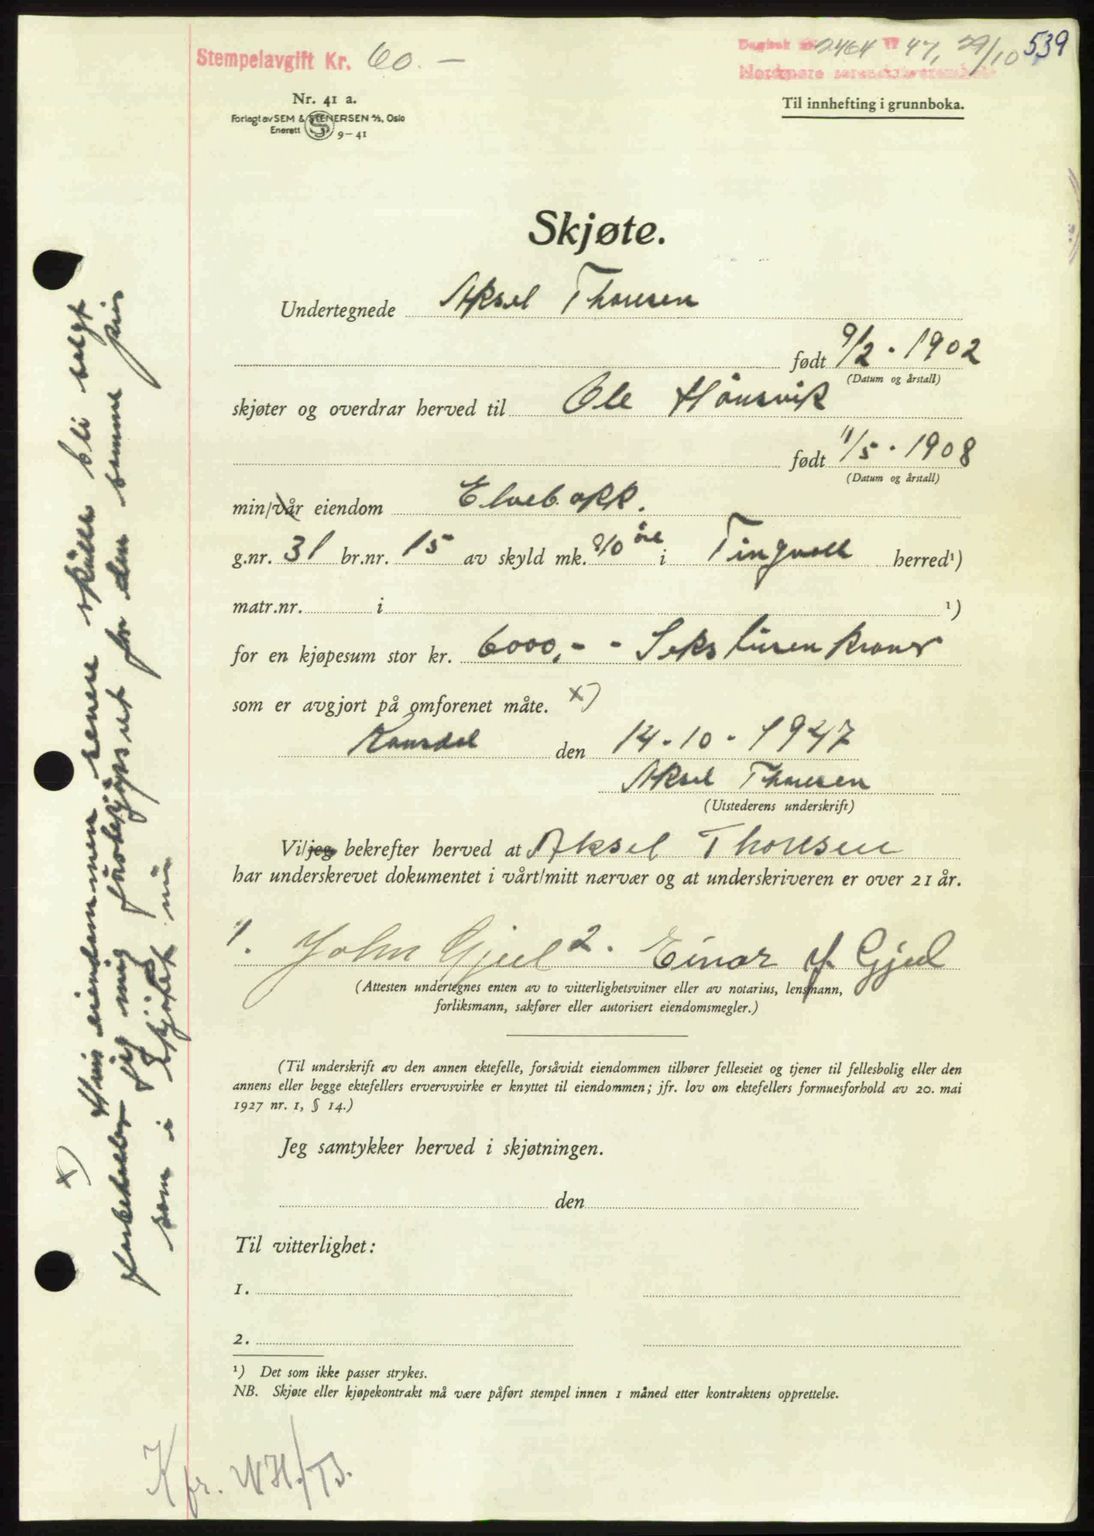 Stempelavgift Kr. 60.–
Dagbok nr. 2464 19 47, 29/10 539
Nordmøre sorenskriverembete
Nr. 41 a.
Forlagt av SEM & STENERSEN A/S, Oslo
Enerett 9–41
Til innhefting i grunnboka.
Skjøte.
Undertegnede Aksel Thousen
født 9/2 - 1902
(Datum og årstall)
skjøter og overdrar herved til Ole Hånsvik
født 11/5 - 1908
(Datum og årstall)
min/vår eiendom Elvebakk.
g.nr. 31 br.nr. 15 av skyld mk. øre i Tingvoll herred¹)
matr.nr. i ¹)
for en kjøpesum stor kr. 6000,- - Seks tusen kroner
som er avgjort på omforenet måte. x)
Kansdal den 14-10-1947
Aksel Thousen
(Utstederens underskrift)
Vi/jeg bekrefter herved at Aksel Thousen
har underskrevet dokumentet i vårt/mitt nærvær og at underskriveren er over 21 år.
1. John Gjul 2. Einar Gjul
(Attesten undertegnes enten av to vitterlighetsvitner eller av notarius, lensmann,
forliksmann, sakfører eller autorisert eiendomsmegler.)
(Til underskrift av den annen ektefelle, forsåvidt eiendommen tilhører felleseiet og tjener til fellesbolig eller den
annens eller begge ektefellers ervervsvirke er knyttet til eiendommen; jfr. lov om ektefellers formuesforhold av 20. mai
1927 nr. 1, § 14.)
Jeg samtykker herved i skjøtningen.
den
Til vitterlighet:
1.
2.
¹) Det som ikke passer strykes.
NB. Skjøte eller kjøpekontrakt må være påført stempel innen 1 måned etter kontraktens opprettelse.
x) Hvis eiendommen senere skulle bli solgt
forbeholder jeg mig forkjøpsret for den samme pris
som i skjøtet nu
Kfr. WH/TB.